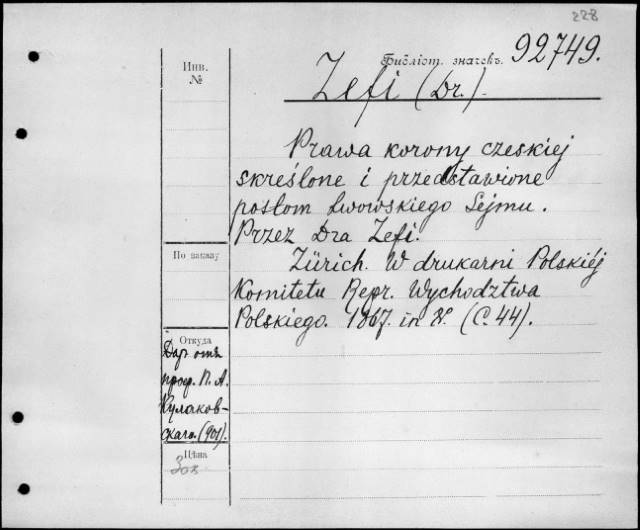 228
Инв.
№
Библіот. значекъ. 92749.
Zefi (Dr.).
Prawa korony czeskiej
skreślone i przedstawione
posłom Lwowskiego Sejmu.
Przez Dra Zefi.
По заказу
Zürich. W drukarni Polskiéj
Komitetu Repr. Wychodztwa
Polskiego. 1867. in 8°. (C. 44).
Откуда
Даръ отъ
проф. П. А.
Кулаков-
скаго. (901).
Цѣна